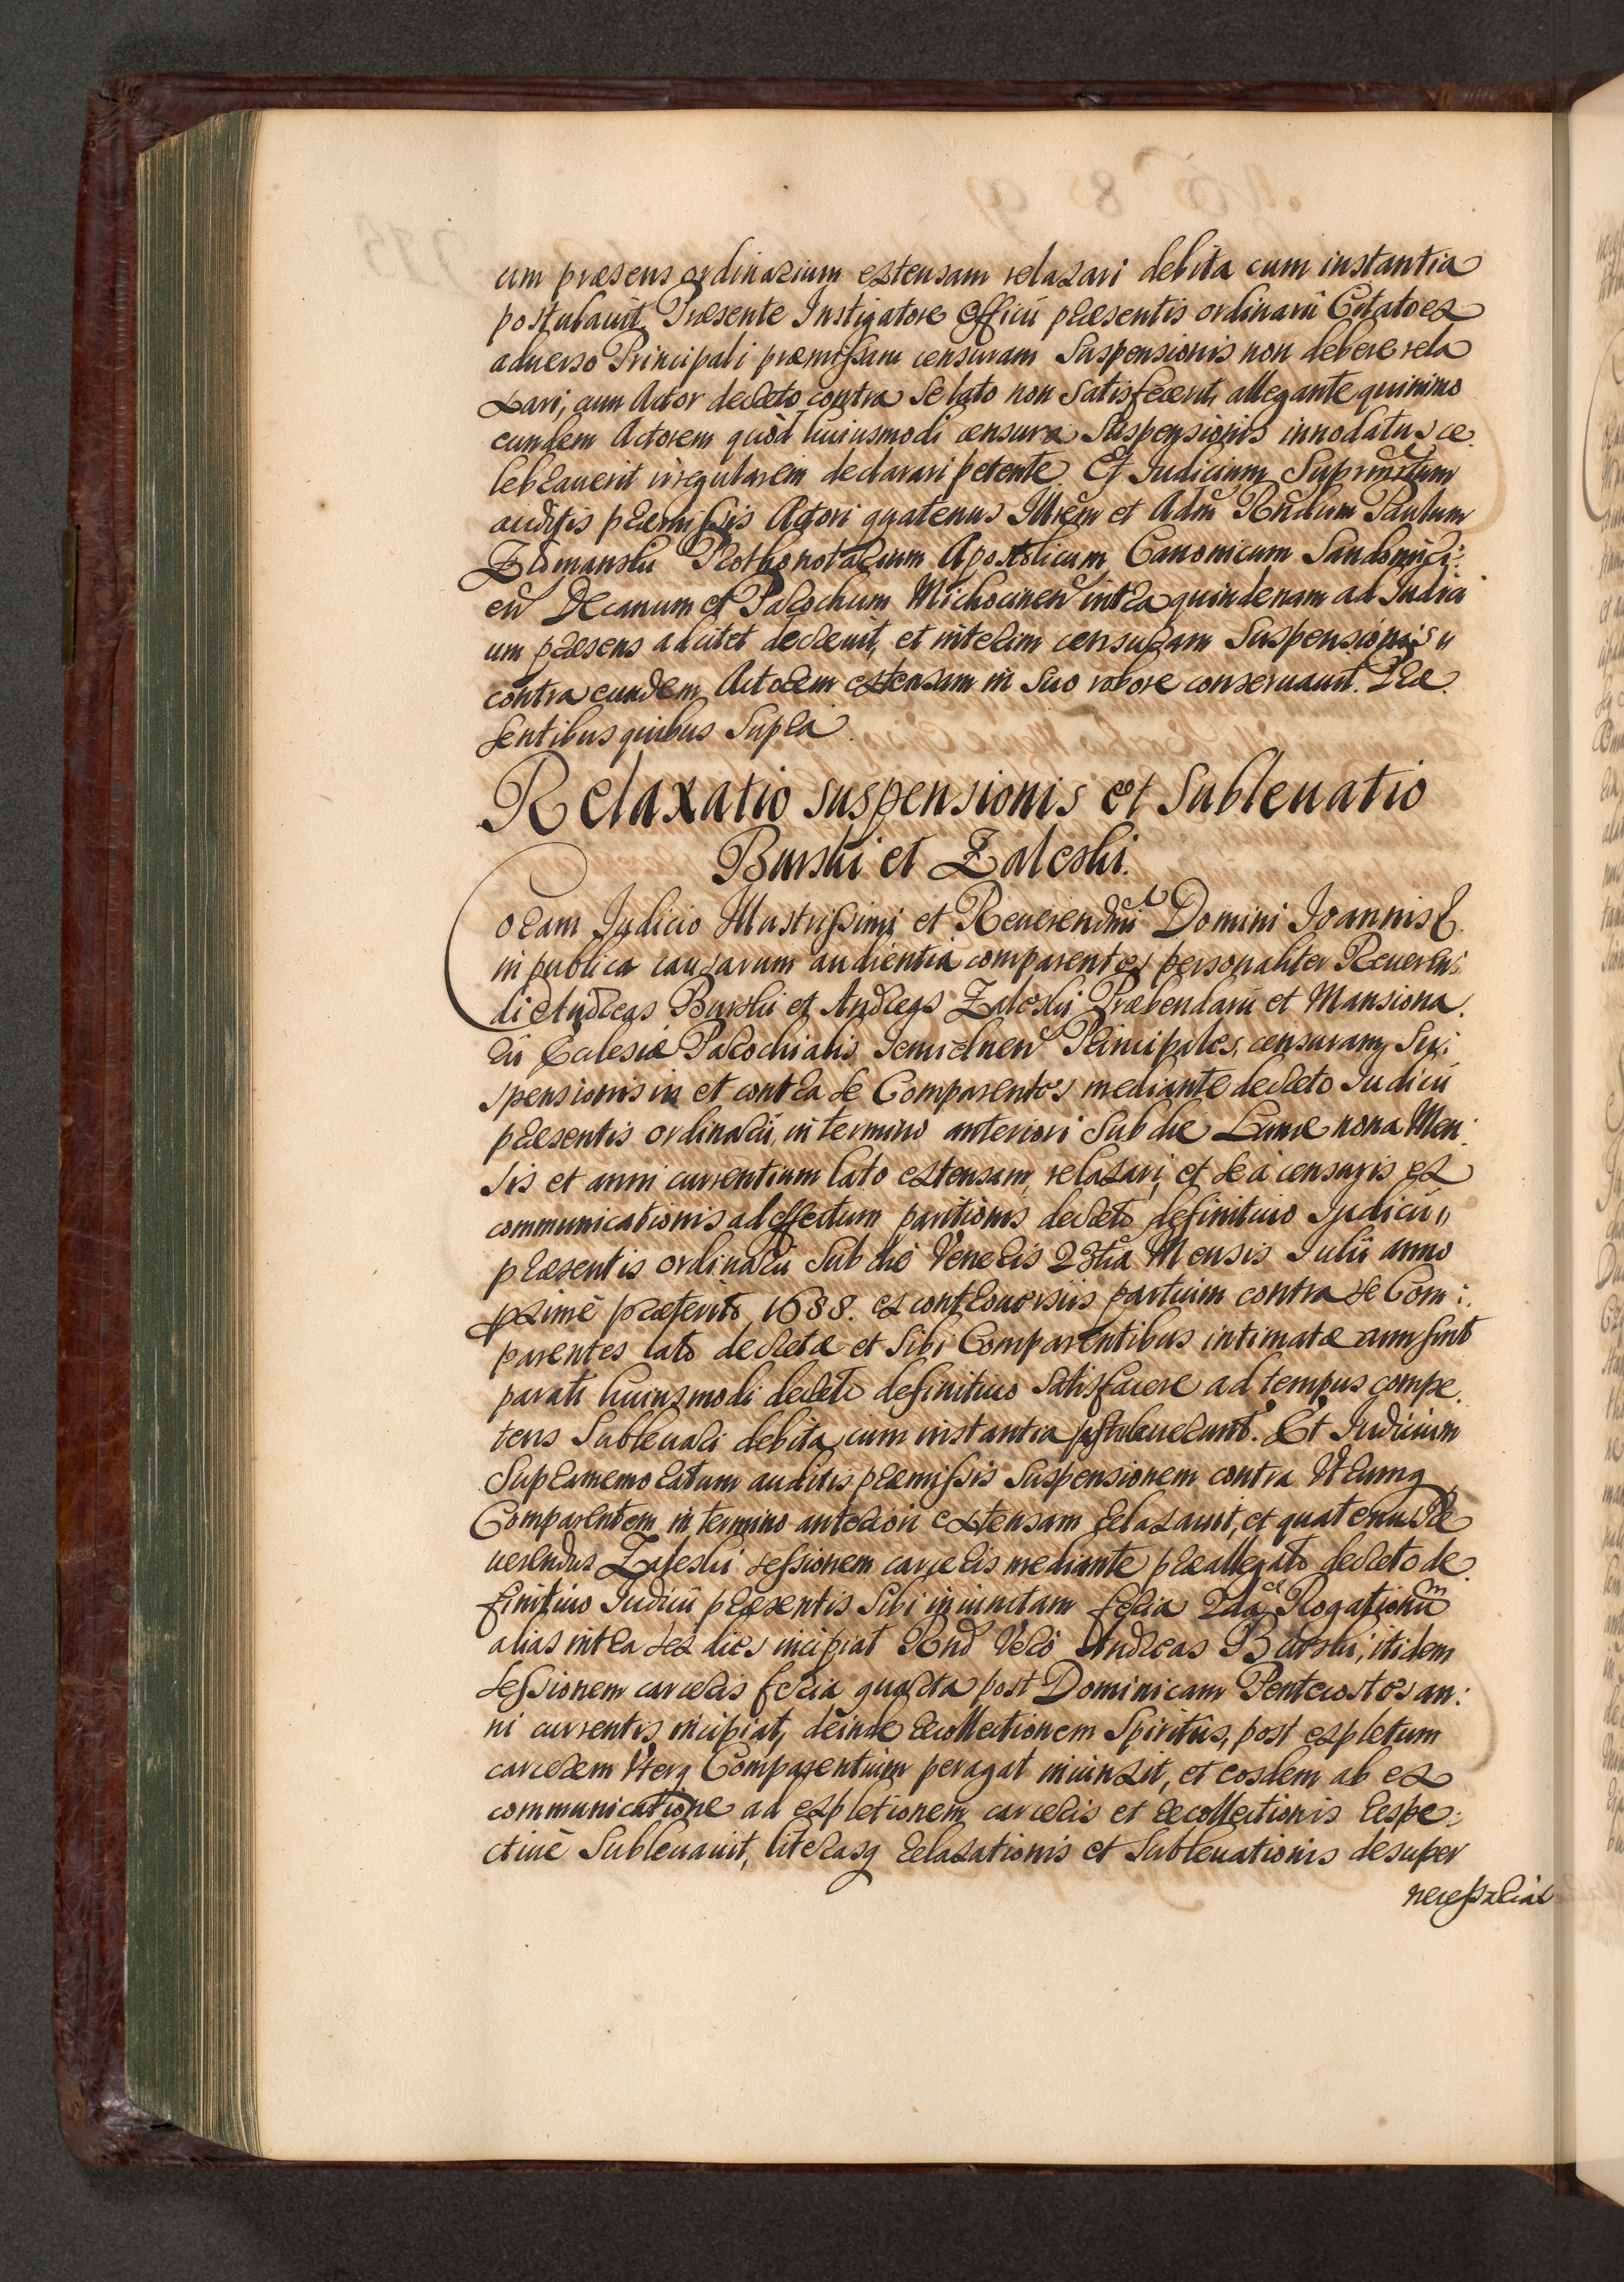 um præsens ordinarium extensam relaxari debita cum instantia
postulauit. Præsente Instigatore Officii præsentis ordinarii Citato ex
aduerso Principali præmissam censuram Suspensionis non debere rela
xari, cum Actor decreto contra Se lato non Satisfecerit, allegante quinimo
eundem Actorem quòd huiusmodi censura Suspensionis innodatus ce.
lebrauerit irregularem declarari petente. Et Iudicium Suprãmtum
auditis præmissis Actori quatenus Illrem et Adm Rndum Paulum
Protho notarium Apostolicum Canonicum Sandomiri:
en Decanum et Parochum Michocinen intra quindenam ad Iudici
um præsens adcitet decreuit, et interim censuram Suspensionis "
contra eundem Actorem extensam in Suo robore conseruauit. Præ.
Sentibus quibus Supra.
Relaxatio suspensionis et Subleuatio
Burski et Zaleski.
Coram Iudicio Illustrissimi et Reuerendmi Domini Ioannis &
in publica causarum audientia comparentes personaliter Reueren:
di Andreas Burski et Andreas Zaleski Præbendarii et Mansiona.
rii Ecclesiæ Parochialis Principales, censuram Su:
spensionis in et contra se Comparentes mediante decreto Iudicii
præsentis ordinarii, in termino anteriori Sub die Lunæ nona Men:
sis et anni currentium lato extensam, relaxari, et se à censuris ex
communicationis ad effectum paritionis decreto definitiuo Iudicii "
præsentis ordinarii Sub die Veneris 23tia Mensis Iulii anno
pximè præterito 1688. ex controuersiis partium contra se Com:
parentes lato decretæ et Sibi Comparentibus intimatæ cum sint
parati huiusmodi decreto definitiuo Satisfacere ad tempus compe.
tens Subleuari debita cum instantia postulauerunt. Et Iudicium
Supramemoratum auditis præmissis Suspensionem contra Vtrumq
Comparentem in termino anteriori extensam relaxauit, et quatenus Re
uerendus Zaleski sessionem carceris mediante præallegato decreto de.
finitiuo Iudicii præsentis Sibi iniunctam feria 2da Rogationũ
alias intra sex dies incipiat Rnd Verò Andreas Burski, itidem
Sessionem carceris feria quarta post Dominicam Pentecostes an:
ni currentis incipiat, deinde recollectionem Spiritus, post expletum
carcerem Vterq Comparentium peragat iniunxit, et eosdem ab ex
communicatione ad expletionem carceris et recollectionis respe:
ctiuè Subleuauit, literasq relaxationis et Subleuationis desuper
necessarias